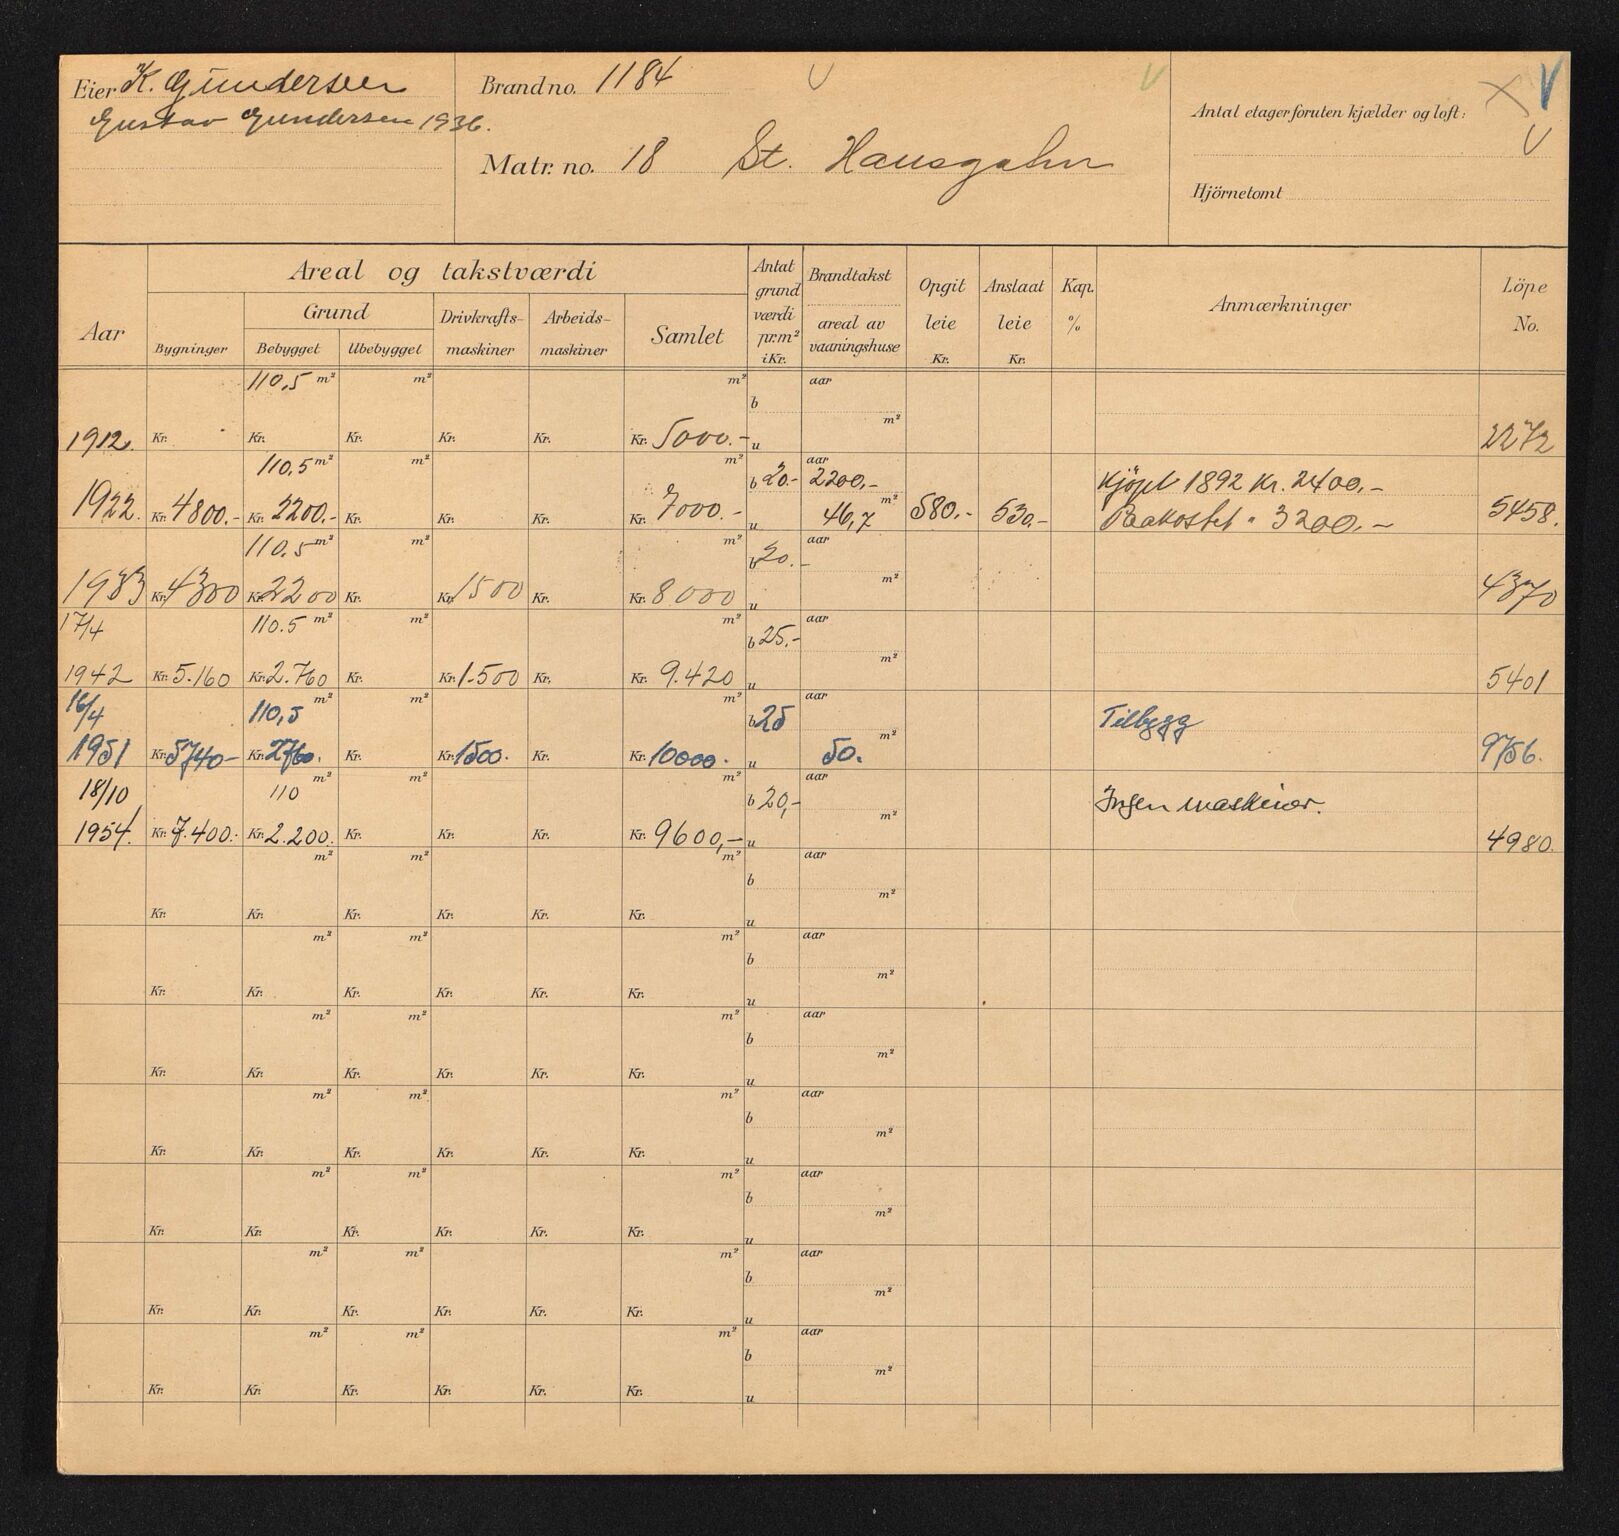 Eier K. Gundersen
Gustav Gundersen 1936.
Brand no. 1184
Matr. no. 18 St. Hansgaten
Antal etager foruten kjælder og loft:
Hjörnetomt
Aar
Areal og takstværdi
Bygninger
Grund
Bebygget
Ubebygget
Drivkrafts-
maskiner
Arbeids-
maskiner
Samlet
Antat
grund
værdi
pr.m²
i Kr.
Brandtakst
areal av
vaaningshuse
Opgit
leie
Kr.
Anslaat
leie
Kr.
Kap.
%
Anmærkninger
Löpe
No.
110,5 m² m² m² aar
b
m²
1912. Kr. Kr. Kr. Kr. Kr. Kr. 5000.- u 2272
110,5 m² m² m² aar
b 20.- 2200,- Kjöpt 1892 Kr. 2400,-
m²
1922. Kr. 4800.- Kr. 2200.- Kr. Kr. Kr. Kr. 7000.- u 46,7 580.- 530.- Paakostet " 3200,- 5458.
110.5 m² m² m² aar
b 20.-
m²
1933 Kr. 4300 Kr. 2200 Kr. Kr. 1500 Kr. Kr. 8000 u 4370
17/4 110.5 m² m² m² aar
b 25.-
m²
1942 Kr. 5.160 Kr. 2.760 Kr. Kr. 1.500 Kr. Kr. 9.420 u 5401
16/4 110,5 m² m² m² aar
b 25 Tilbygg
m²
1951 Kr. 5740- Kr. 2760. Kr. Kr. 1500. Kr. Kr. 10000. u 50. 9756.
18/10 110 m² m² m² aar
b 20,- Ingen maskiner.
m²
1954. Kr. 7.400. Kr. 2.200. Kr. Kr. Kr. Kr. 9600,- u 4980.
m² m² m² aar
b
m²
Kr. Kr. Kr. Kr. Kr. Kr. u
m² m² m² aar
b
m²
Kr. Kr. Kr. Kr. Kr. Kr. u
m² m² m² aar
b
m²
Kr. Kr. Kr. Kr. Kr. Kr. u
m² m² m² aar
b
m²
Kr. Kr. Kr. Kr. Kr. Kr. u
m² m² m² aar
b
m²
Kr. Kr. Kr. Kr. Kr. Kr. u
m² m² m² aar
b
m²
Kr. Kr. Kr. Kr. Kr. Kr. u
m² m² m² aar
b
m²
Kr. Kr. Kr. Kr. Kr. Kr. u